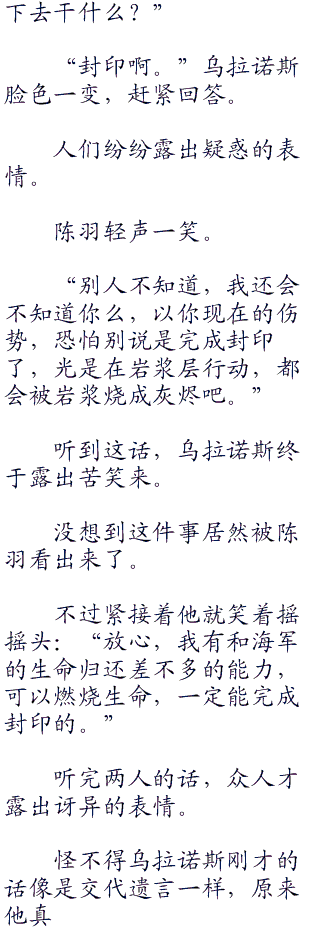 下去干什么？”
“封印啊。”乌拉诺斯
脸色一变，赶紧回答。
人们纷纷露出疑惑的表
情。
陈羽轻声一笑。
“别人不知道，我还会
不知道你么，以你现在的伤
势，恐怕别说是完成封印
了，光是在岩浆层行动，都
会被岩浆烧成灰烬吧。”
听到这话，乌拉诺斯终
于露出苦笑来。
没想到这件事居然被陈
羽看出来了。
不过紧接着他就笑着摇
摇头：“放心，我有和海军
的生命归还差不多的能力，
可以燃烧生命，一定能完成
封印的。”
听完两人的话，众人才
露出讶异的表情。
怪不得乌拉诺斯刚才的
话像是交代遗言一样，原来
他真